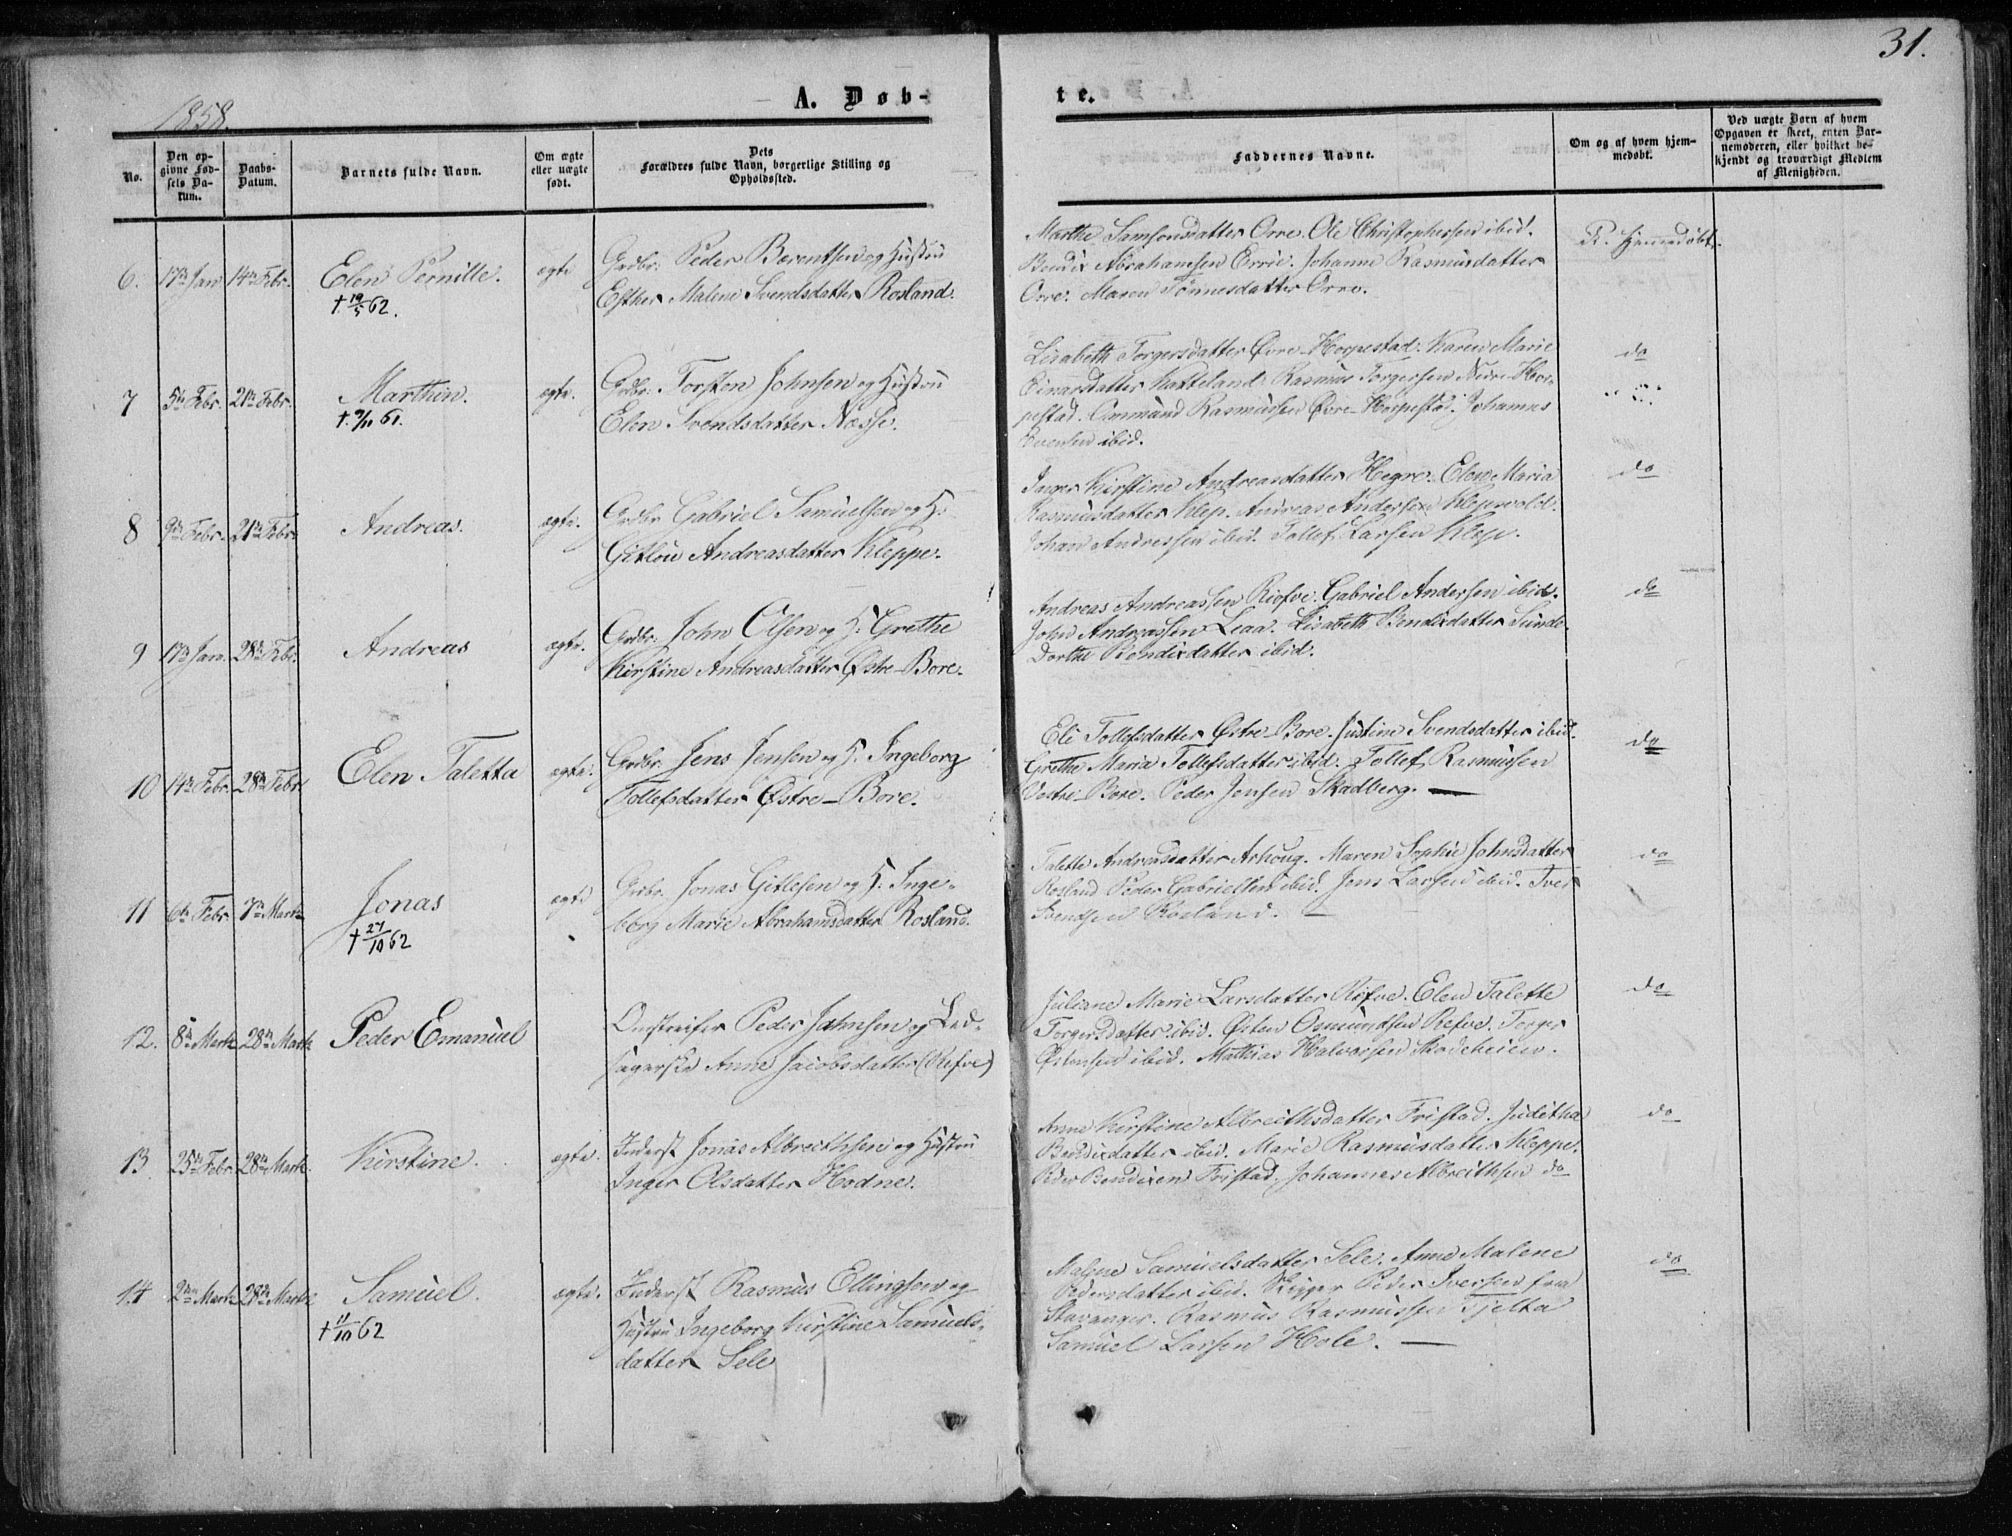 31.
1858.
A. Døb-
te.
No.
Den op-
givne Fød-
sels Da-
tum.
Daabs-
Datum.
Barnets fulde Navn.
Om ægte
eller uægte
født.
Dets
Forældres fulde Navn, borgerlige Stilling og
Opholdssted.
Faddernes Navne.
Om og af hvem hjem-
medøbt.
Ved uægte Børn af hvem
Opgaven er skeet, enten Bar-
nemoderen, eller hvilket be-
kjendt og troværdigt Medlem
af Menigheden.
6. 17de Jan 14de Febr. Elen Pernille. ægte
† 19/5 62.
Grdbr. Peder Berentsen og Hustru
Esther Malene Svendsdatter Rosland.
Marthe Samsonsdatter Orre. Ole Christophersen ibid.
Bendix Abrahamsen Errie. Johanne Rasmusdatter
Orre. Maren Tønnesdatter Orre.
Hjemmedøbt.
7 5te Febr. 21de Febr. Marthin. ægte.
† 9/11 61.
Grdbr. Torsten Johnsen og Hustru
Elen Svendsdatter Næsse.
Lisabeth Torgersdatter Øvre-Horpestad. Karen Marie
Einarsdatter Katteland. Rasmus Torgersen Nedre Hor-
pestad. Ommund Rasmussen Øvre-Horpestad. Johannes
ibid.
do
8 9de Febr. 21de Febr. Andreas. ægte.
Grdbr Gabriel Samuelsen og H.
Gitlou Andreasdatter Kleppe.
Inger Kirstine Andreasdatter Hegre. Elen Maria
Rasmusdatter Klep. Andreas Andersen Klepvold.
Johan Andreassen ibid. Tollef Larsen Klep.
do
9 17de Jan. 28de Febr. Andreas ægte.
Grdbr. John Olsen og H. Grethe
Kirstine Andreasdatter Østre-Bore.
Andreas Andreassen Riefve. Gabriel Andersen ibid.
John Andreassen Leaa. Lisabeth Bendixdatter Sunde.
Dorthe Bendixdatter ibid.
do
10 14de Febr. 28de Febr. Elen Taletta ægte.
Grdbr. Jens Jensen og H. Ingeborg
Tollefsdatter Østre-Bore.
Eli Tollefsdatter Østre-Bore. Justine Svendsdatter ibid.
Grethe Maria Tollefsdatter ibid. Tollef Rasmussen
Vestre-Bore. Peder Jensen Skadberg. —
do
11 6te Febr. 7de Marts Jonas ægte
† 27/10 62
Grdbr. Jonas Gitlesen og H. Inge-
borg Marie Abrahamsdatter Rosland.
Talette Andreasdatter Arhoug. Maren Sophie Johnsdatter
Rosland Peder Gabrielsen ibid. Jens Larsen ibid. Iver
Svendsen Rosland. —
do
12. 8de Marts 28de Marts Peder Emanuel
Omstreifer Peder Johnsen og Led-
sagerske Anne Jacobsdatter (Refve)
Juliane Marie Larsdatter Refve. Elen Talette
Torgersdatter ibid. Østen Osmundsen Refve. Torger
Østensen ibid. Mathias Halvorsen Skodeheien.
do
13 25de Febr. 28de Marts. Kirstine. ægte.
Inderst Jonas Albreithsen og Hustru
Inger Olsdatter Hodne.
Anne Kirstine Albreithsdatter Fristad. Juditha
Bendixdatter ibid. Marie Rasmusdatter Kleppe.
Peder Bendixen Fristad. Johannes Albreithsen do
do
14 2den Marts 28de Marts Samuel. ægte.
† 11/10 62
Inderst Rasmus Ellingsen og
Hustru Ingeborg Kirstine Samuels-
datter Sele
Malene Samuelsdatter Sele. Anne Malene
Pedersdatter ibid. Skipper Peder Iversen fra
Stavanger. Rasmus Rasmussen Tjelta
Samuel Larsen Hole. —
do